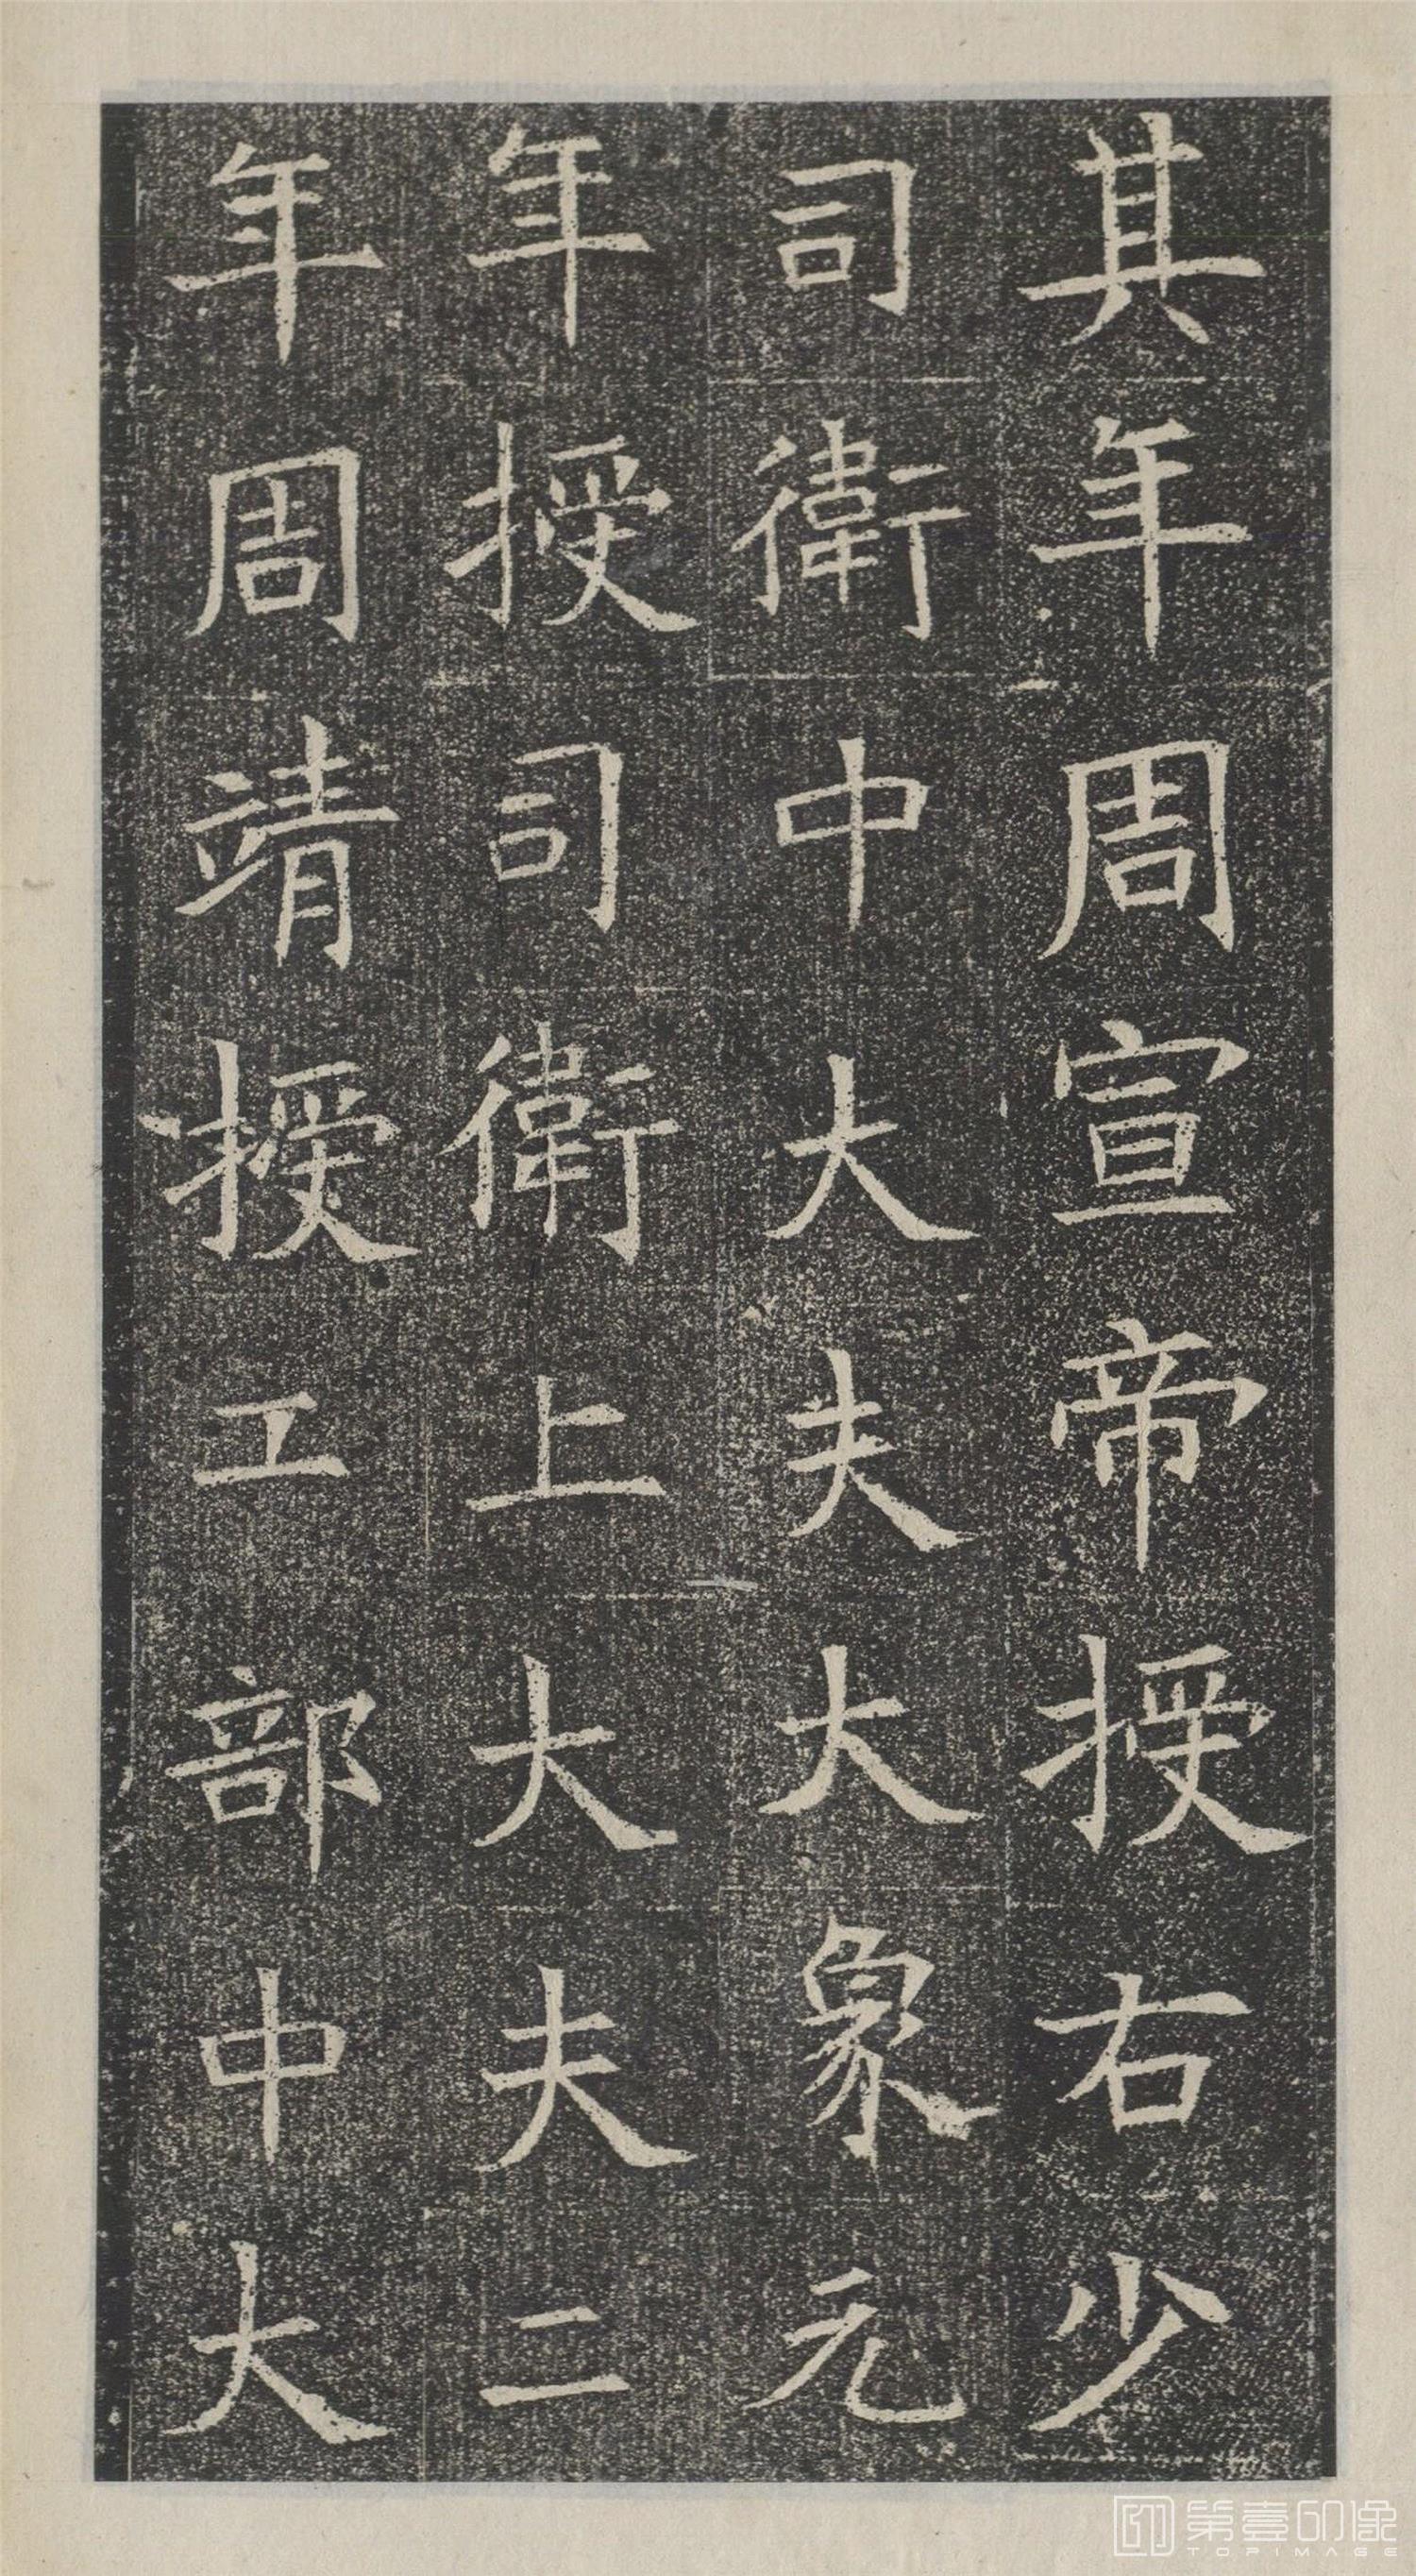 其年周宣帝授右少
司衛中大夫大象元
年授司衛上大夫二
年周靖授工部中大
第壹印像
TOPIMAGE